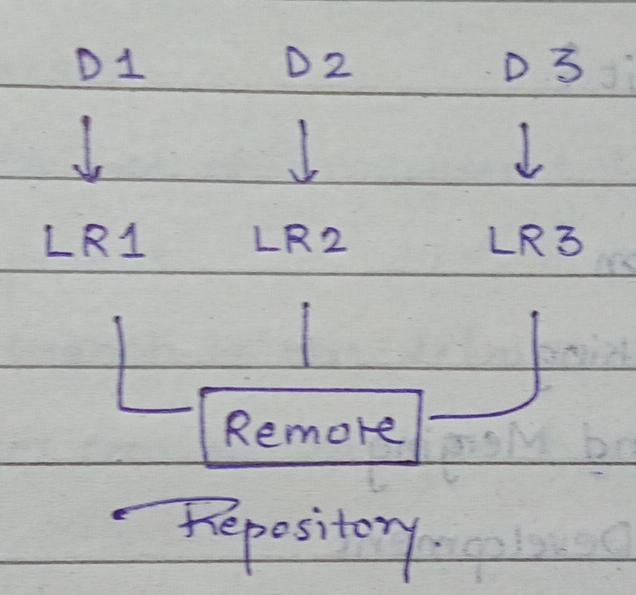 D1 D2 D3
LR1 LR2 LR3
Remote
Repository